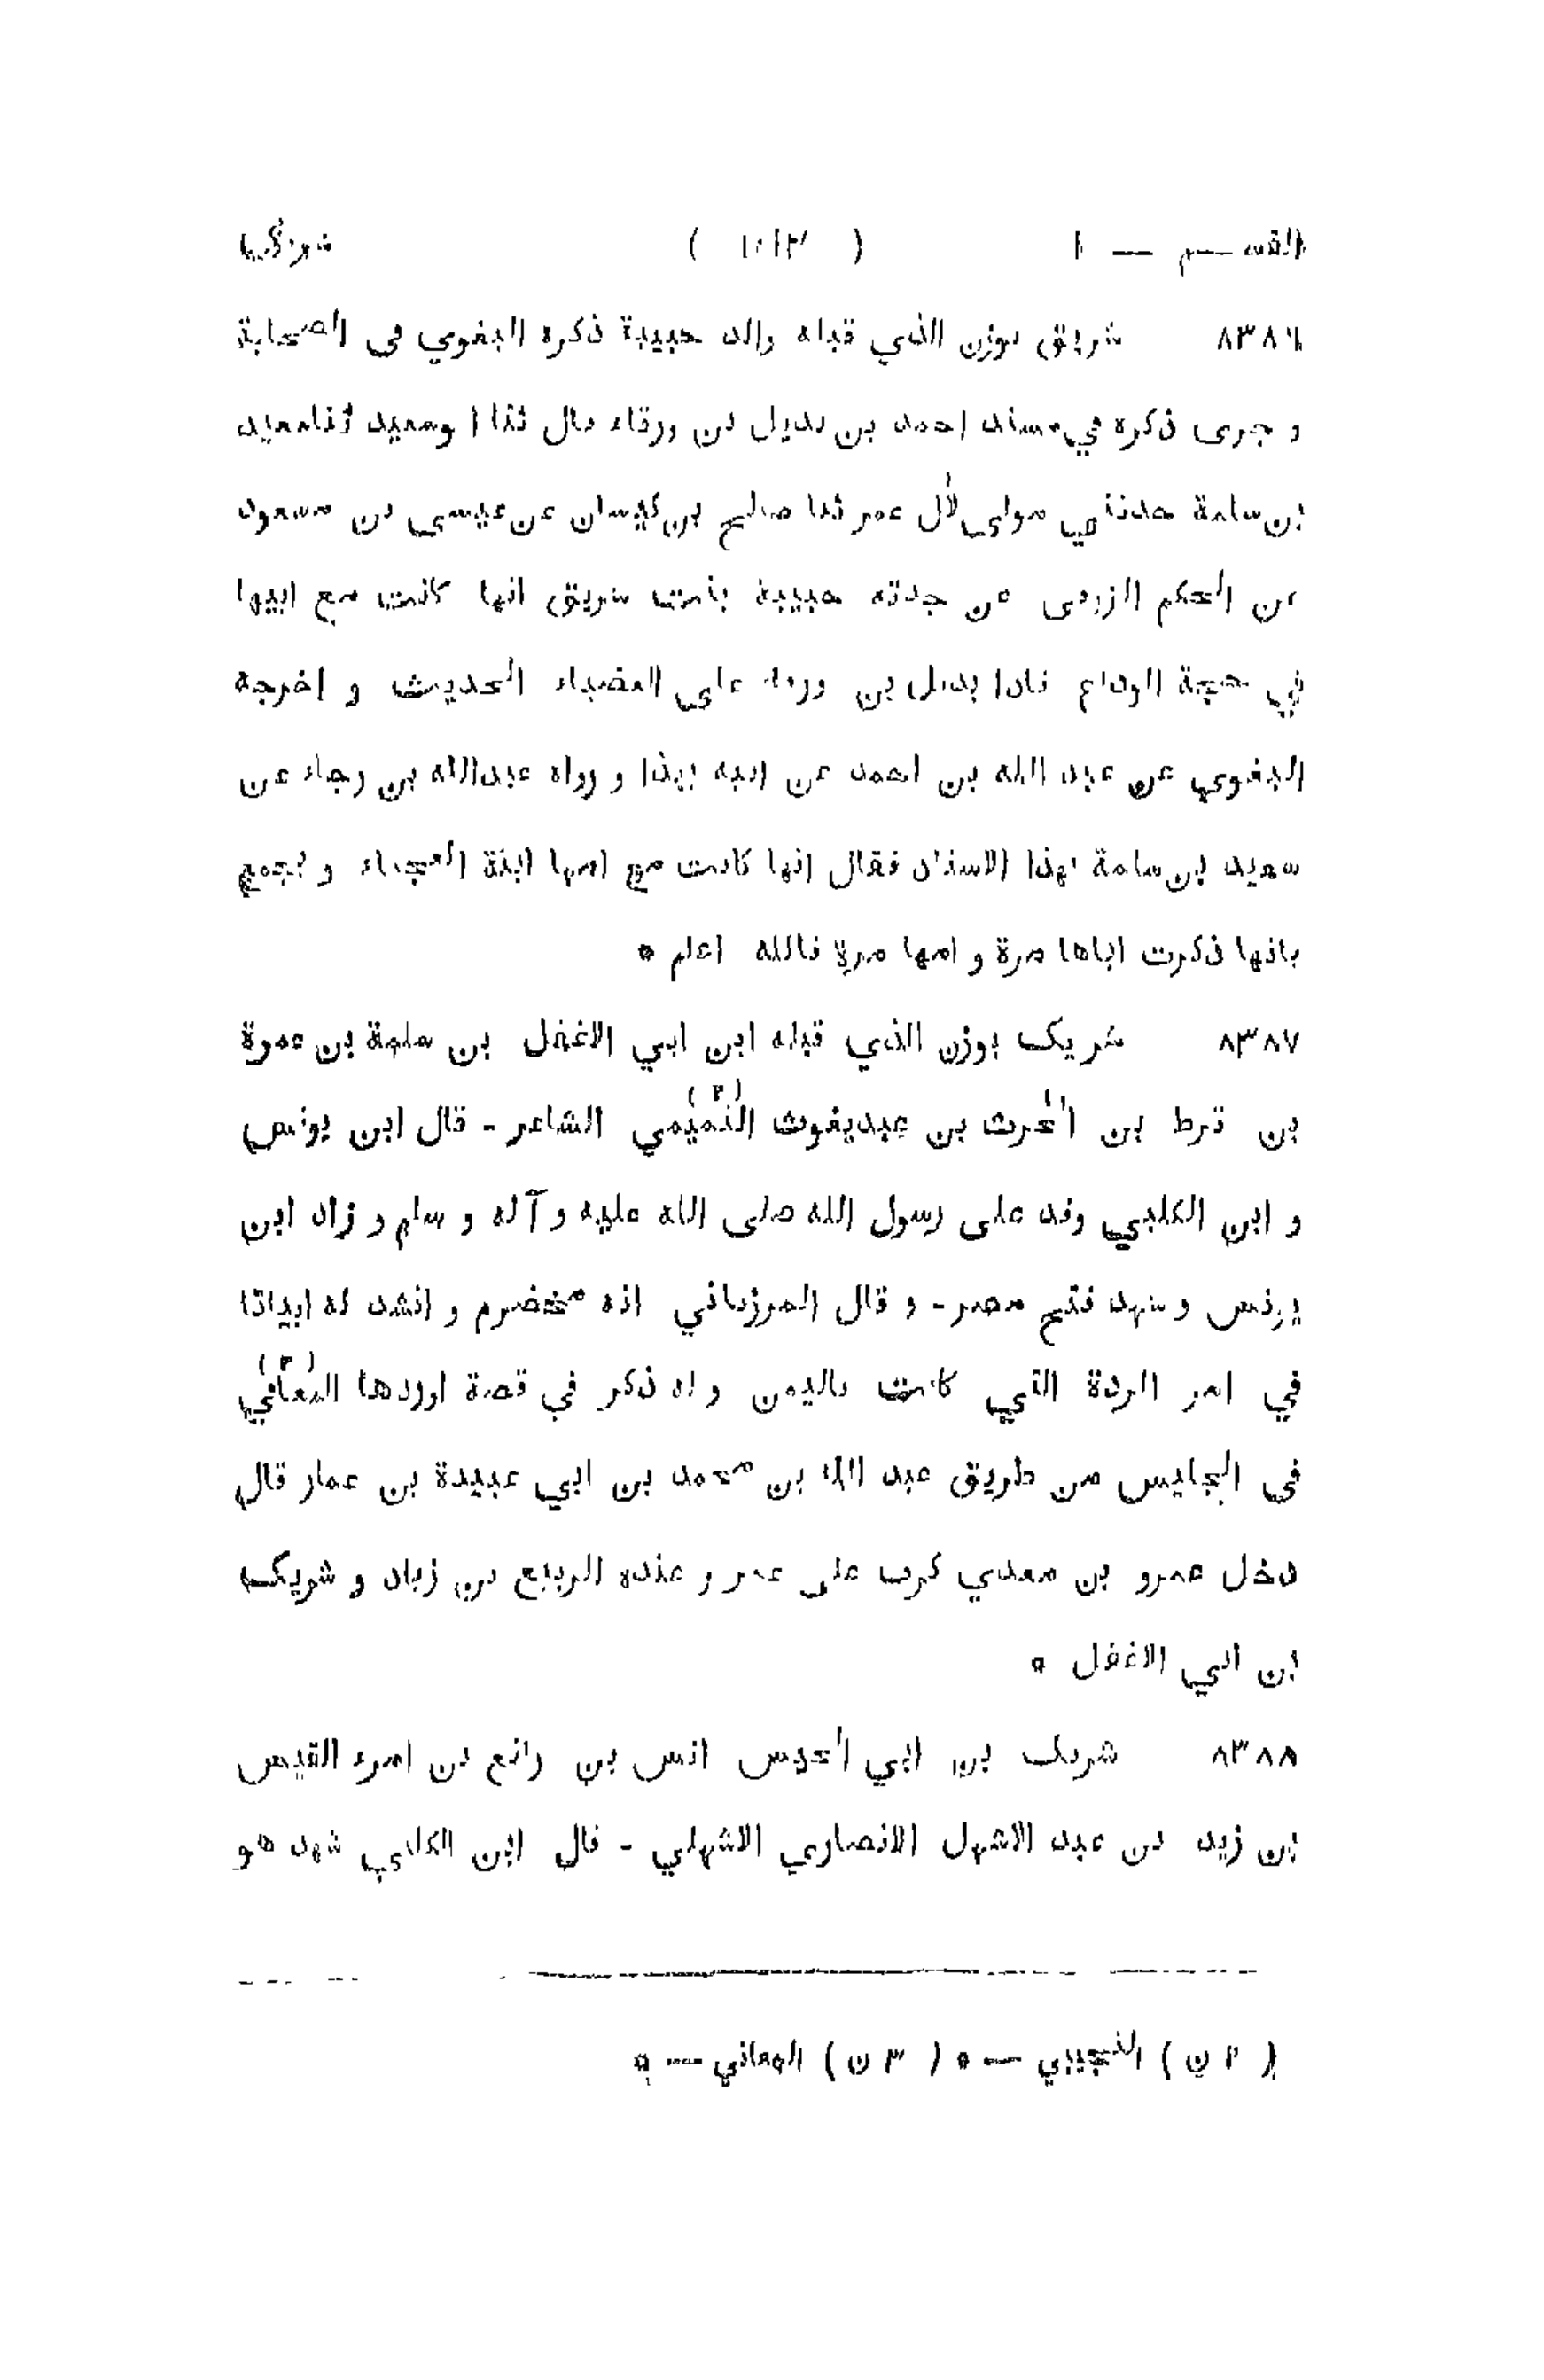 القسم — ١
٨٣٨٦ شريق بوزن الذي قبله والد حبيبة ذكره البغوي في الصحابة
و جرى ذكره في مسند احمد بن بديل بن ورقاء قال ثنا ابو سعيد ثنا سعيد
بن سلمة حدثني مولى لآل عمر ثنا صالح بن كيسان عن عيسى بن مسعود
بن الحكم الزرقى عن جدته حبيبة بنت شريق انها كانت مع ابيها
في حجة الوداع فاذا بديل بن ورقاء على العضباء الحديث و اخرجه
البغوي عن عبد الله بن احمد عن ابيه بهذا و رواه عبدالله بن رجاء عن
سعيد بن سلمة بهذا الاسناد فقال انها كانت مع امها ابنة العجماء و يجمع
بانها ذكرت اباها مرة و امها مرة فالله اعلم *
٨٣٨٧ شريك بوزن الذي قبله ابن ابي الاغفل بن سلمة بن عمرة
بن قرط بن الحرث بن عبديغوث التميمي (٢) الشاعر - قال ابن يونس
و ابن الكلبي وفد على رسول الله صلى الله عليه و آله و سلم و زاد ابن
يونس و شهد فتح مصر - و قال المرزباني انه مخضرم و انشد له ابياتا
في امر الردة التي كانت باليمن و له ذكر في قصة اوردها المعافي (٣)
في الجليس من طريق عبد الله بن محمد بن ابي عبيدة بن عمار قال
دخل عمرو بن معدي كرب على عمر و عنده الربيع بن زياد و شريك
ابن ابي الاغفل *
٨٣٨٨ شريك بن ابي الحيس انس بن رافع بن امرء القيس
بن زيد بن عبد الاشهل الانصاري الاشهلي - قال ابن الكلبي شهد هو
( ٢ ن ) التجيبي — * ( ٣ ن ) المعاني — *